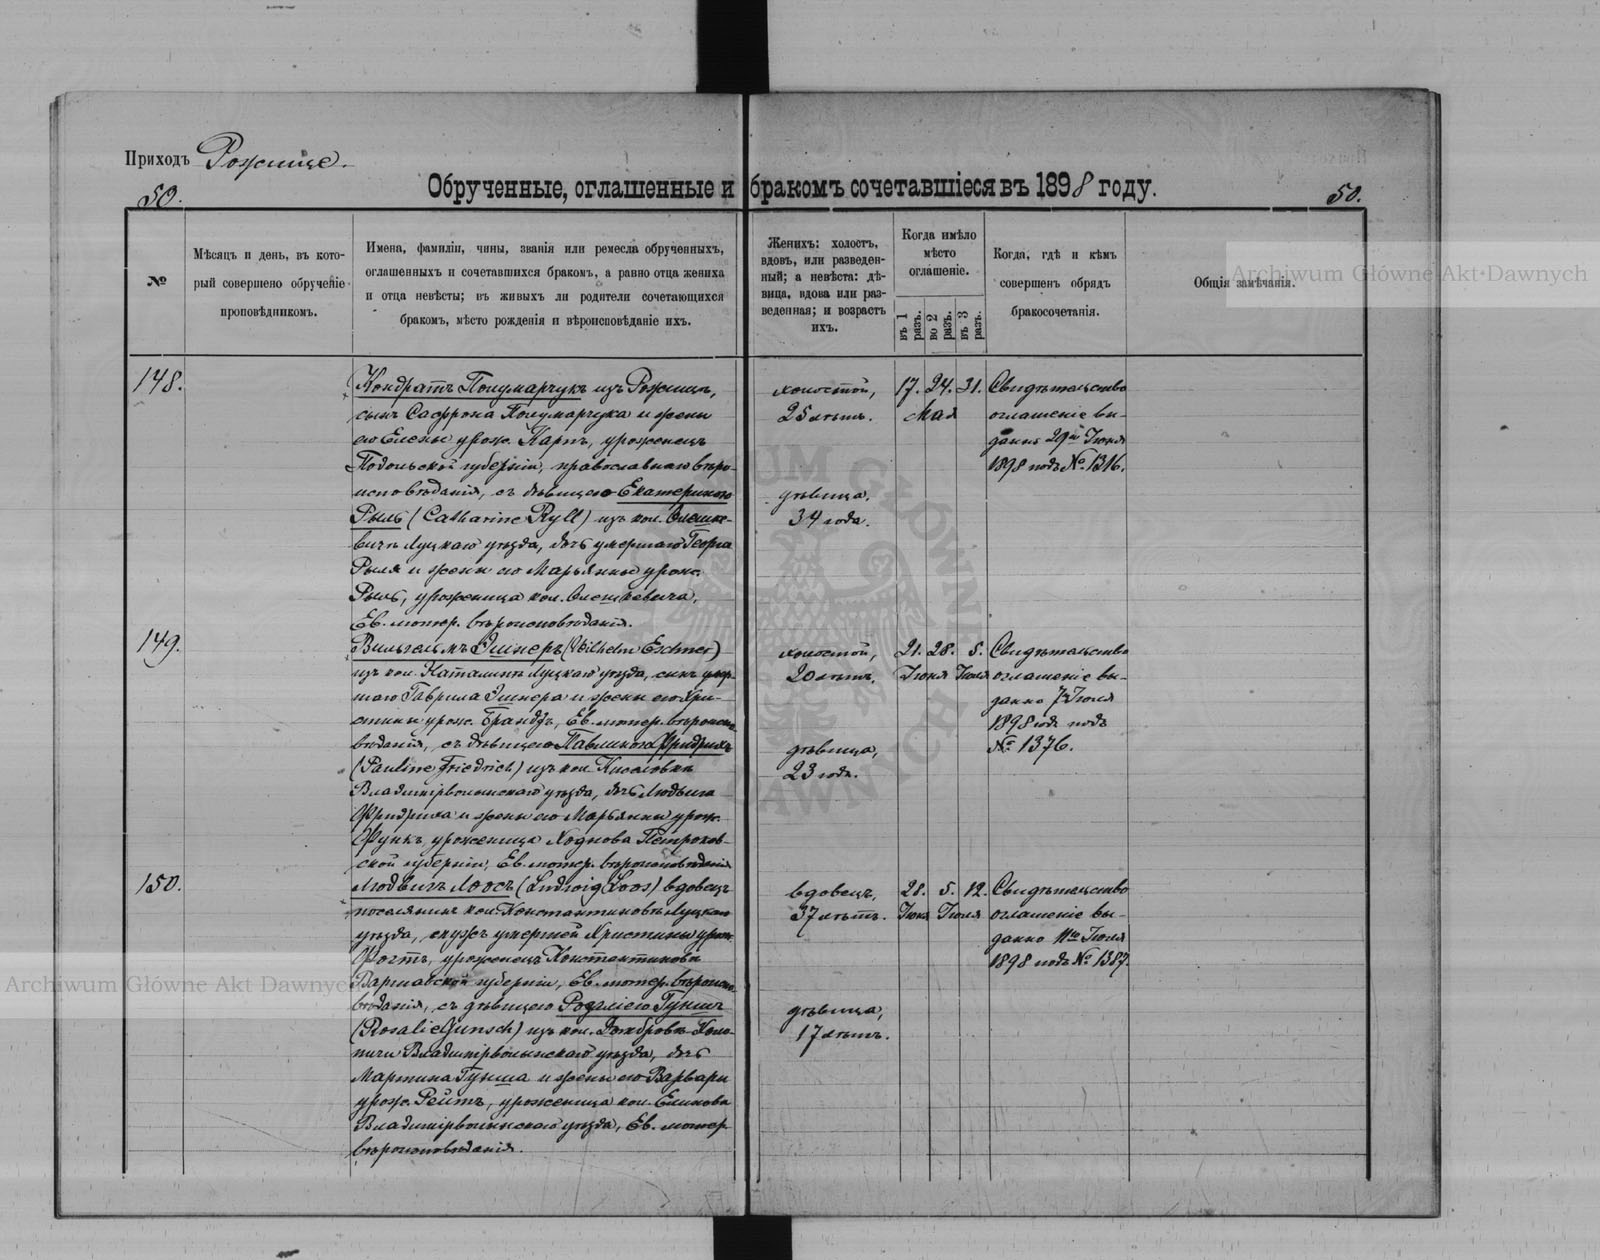 Приходъ Рожище.
50.
Обрученные, оглашенные и бракомъ сочетавшіеся въ 1898 году.
50.
№
Мѣсяцъ и день, въ кото-
рый совершено обрученіе
проповѣдникомъ.
Имена, фамиліи, чины, званія или ремесла обрученныхъ,
оглашенныхъ и сочетавшихся бракомъ, а равно отца жениха
и отца невѣсты; въ живыхъ ли родители сочетающихся
бракомъ, мѣсто рожденія и вѣроисповѣданіе ихъ.
Женихъ: холостъ,
вдовъ, или разведен-
ный; а невѣста: дѣ-
вица, вдова или раз-
веденная; и возрастъ
ихъ.
Когда имѣло
мѣсто
оглашеніе.
въ 1 разъ.
во 2 разъ.
въ 3 разъ.
Когда, гдѣ и кѣмъ
совершенъ обрядъ
бракосочетанія.
Общія замѣчанія.
Archiwum Główne Akt Dawnych
148.
Кондратъ Понумарчукъ изъ Рожищъ,
сынъ Сафрона Понумарчука и жены
его Елены урож. Картъ, уроженецъ
Подольской губерніи, православнаго вѣро-
исповѣданія, съ дѣвицею Екатериною
Рыль (Catharine Ryll) изъ кол. Олешке-
вичъ Луцкаго уѣзда, дочь умершаго Георга
Рыля и жены его Марьянны урож.
Рыль, уроженица кол. Олешкевича,
Ев. лютер. вѣроисповѣданія.
холостой,
25 лѣтъ.
дѣвица,
34 года.
17. 24. 31.
Мая
Свидѣтельство
оглашеніе вы-
дано 29го Іюня
1898 подъ № 1316.
149.
Вильгельмъ Эшнеръ (Wilhelm Eschner)
изъ кол. Луцкаго уѣзда, сынъ умер-
шаго Гаврила Эшнера и жены его Хри-
стины урож. Брандъ, Ев. лютер. вѣроиспо-
вѣданія, съ дѣвицею Павлиною Фридрихъ
(Pauline Friedrich) изъ кол.
Владимірволынскаго уѣзда, дочь Людвига
Фридриха и жены его Марьянны урож.
Функъ, уроженица Петроков-
ской губерніи, Ев. лютер. вѣроисповѣданія
холостой,
20 лѣтъ.
дѣвица,
23 года.
21. 28. 5.
Іюня Іюля
Свидѣтельство
оглашеніе вы-
дано 7го Іюля
1898 года подъ
№ 1376.
150.
Людвигъ Лоосъ (Ludwig Loos) вдовецъ
поселянинъ кол. Константиновкѣ Луцкаго
уѣзда, мужъ умершей Христины урож.
Фогтъ, уроженецъ Константинова
Варшавской губерніи, Ев. лютер. вѣроиспо-
вѣданія, съ дѣвицею Розаліею Гуншъ
(Rosalie Gunsch) изъ кол. Домбровѣ
Владимірволынскаго уѣзда, дочь
Мартина Гунша и жены его Варвары
урож. Рейтъ, уроженица кол. Елинова
Владимірволынскаго уѣзда, Ев. лютер.
вѣроисповѣданія.
вдовецъ,
37 лѣтъ.
дѣвица,
17 лѣтъ.
28. 5. 12.
Іюня Іюля
Свидѣтельство
оглашеніе вы-
дано 11го Іюля
1898 подъ № 1387.
Archiwum Główne Akt Dawnych